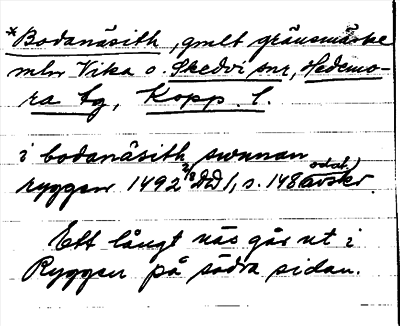 *Bodanäsith, gmlt gränsmärke
mln Vika o. Skedvi snr, Hedemo-
ra tg, Kopp. l.
i bodanäsith swnnan
ryggen 1492 2/8 DD 1, s. 148 odat. avskr.
Ett långt näs går ut i
Ryggen på södra sidan.